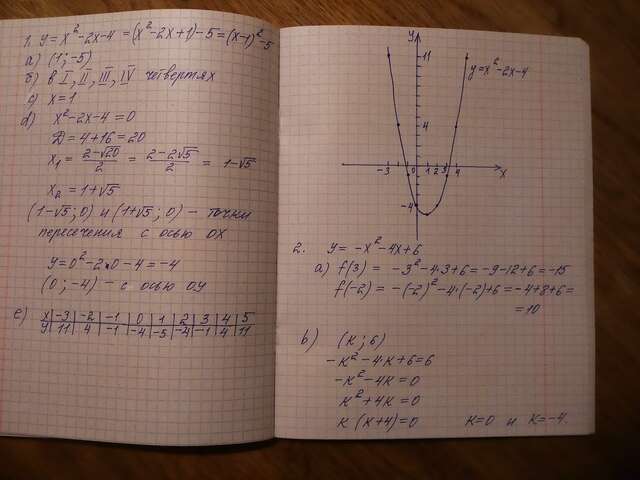 1. y = x² - 2x - 4 = (x² - 2x + 1) - 5 = (x-1)² - 5
a) (1; -5)
б) в I, II, III, IV четвертях
c) x = 1
d) x² - 2x - 4 = 0
D = 4 + 16 = 20
x₁ = (2-√20)/2 = (2-2√5)/2 = 1-√5
x₂ = 1+√5
(1-√5; 0) и (1+√5; 0) - точки
пересечения с осью OX
y = 0² - 2·0 - 4 = -4
(0; -4) - с осью OY
e) x | -3 | -2 | -1 | 0 | 1 | 2 | 3 | 4 | 5
y | 11 | 4 | -1 | -4 | -5 | -4 | -1 | 4 | 11
y
11
y = x² - 2x - 4
4
-3 0 1 2 3 4 x
-4
2. y = -x² - 4x + 6
a) f(3) = -3² - 4·3 + 6 = -9 - 12 + 6 = -15
f(-2) = -(-2)² - 4·(-2) + 6 = -4 + 8 + 6 =
= 10
b) (k; 6)
-k² - 4·k + 6 = 6
-k² - 4k = 0
k² + 4k = 0
k (k+4) = 0 k = 0 и k = -4.